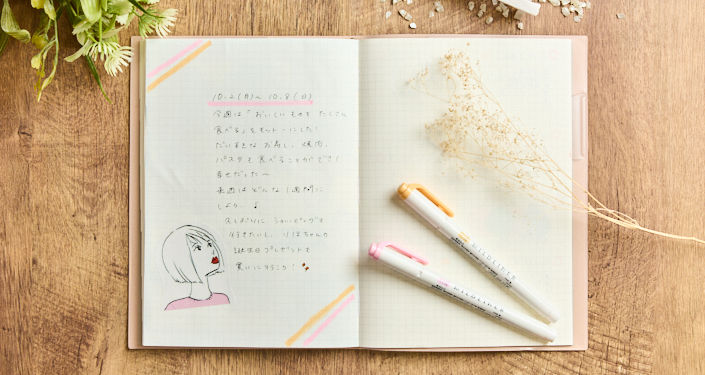 10.2(月)〜10.8(日)
今週は「おいしいものを たくさん
食べる」をモットーにした!
だいすきな お寿し、焼肉、
パスタを食べることができて
幸せだった〜
来週はどんな1週間に
しよう♪
久しぶりに ショッピングも
行きたいし、りほちゃんの
誕生日プレゼントも
買いに行こう!
MILDLINER
MILDLINER